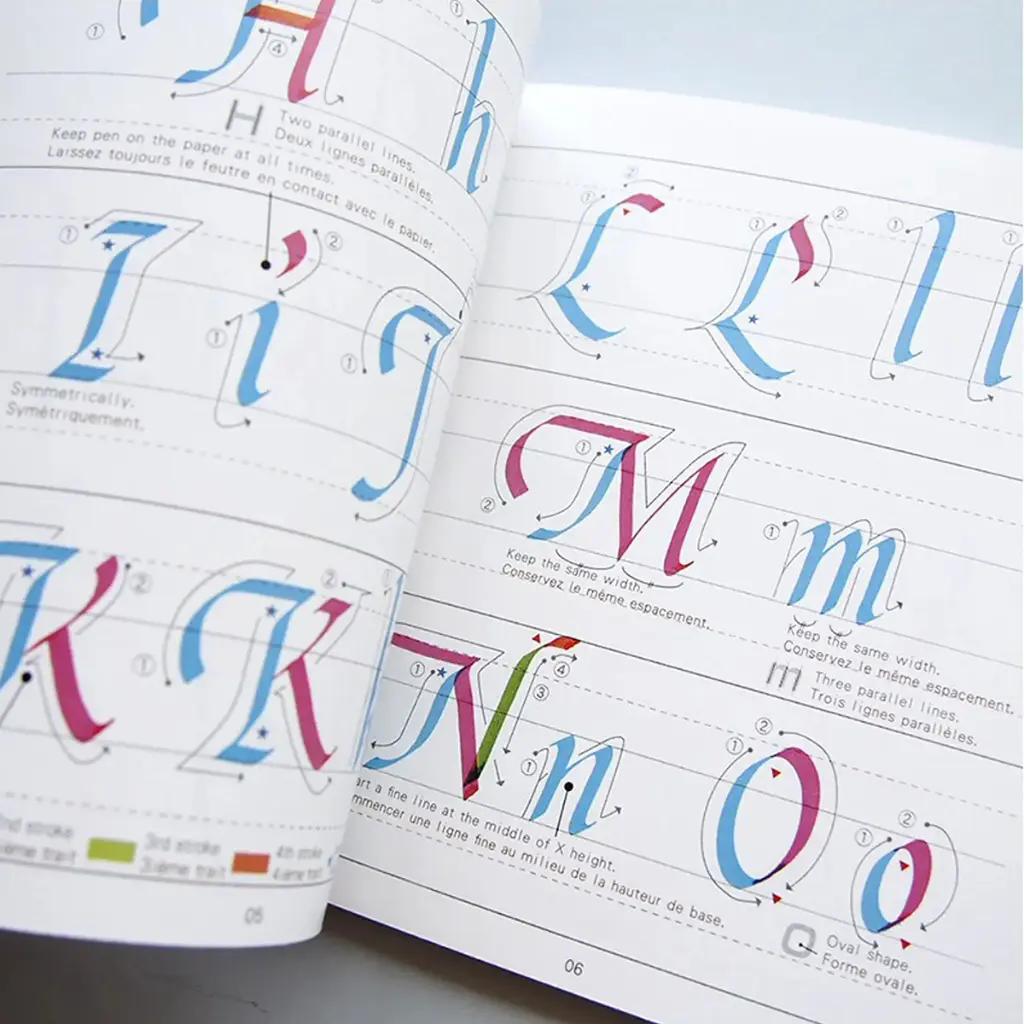 ① ④ ①
H h
H Two parallel lines.
Deux lignes parallèles.
Keep pen on the paper at all times.
Laissez toujours le feutre en contact avec le papier.
① ② ① ①
I i J
Symmetrically.
Symétriquement.
② ① ②
K K
2nd stroke 3rd stroke 4th stroke
2ième trait 3ième trait 4ième trait
05
① ② ① ② ① ①
L L l l
① ② ①
M m
Keep the same width.
Conservez le même espacement.
Keep the same width.
Conservez le même espacement.
m Three parallel lines.
Trois lignes parallèles.
① ④ ③ ① ① ② ① ②
N n O o
a fine line at the middle of X height.
une ligne fine au milieu de la hauteur de base.
O Oval shape.
Forme ovale.
06